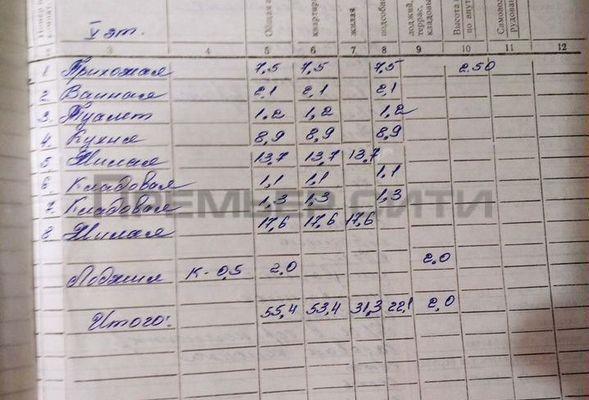 V эт.
Общая
квартир
жилая
подсобн
лоджий,
террас,
кладовы
Высота
по внут
Самовол
рудован
3 4 5 6 7 8 9 10 11 12
1 Прихожая 7,5 7,5 7,5 2.50
2 Ванная 2,1 2,1 2,1
3 Туалет 1,2 1,2 1,2
4 Кухня 8,9 8,9 8,9
5 Жилая 13,7 13,7 13,7
6 Кладовая 1,1 1,1 1,1
7 Кладовая 1,3 1,3 1,3
ПРЕМЬЕР СИТИ
8 Жилая 17,6 17,6 17,6
Лоджия К-0,5 2.0 2.0
Итого: 55,4 53,4 31,3 22,1 2,0